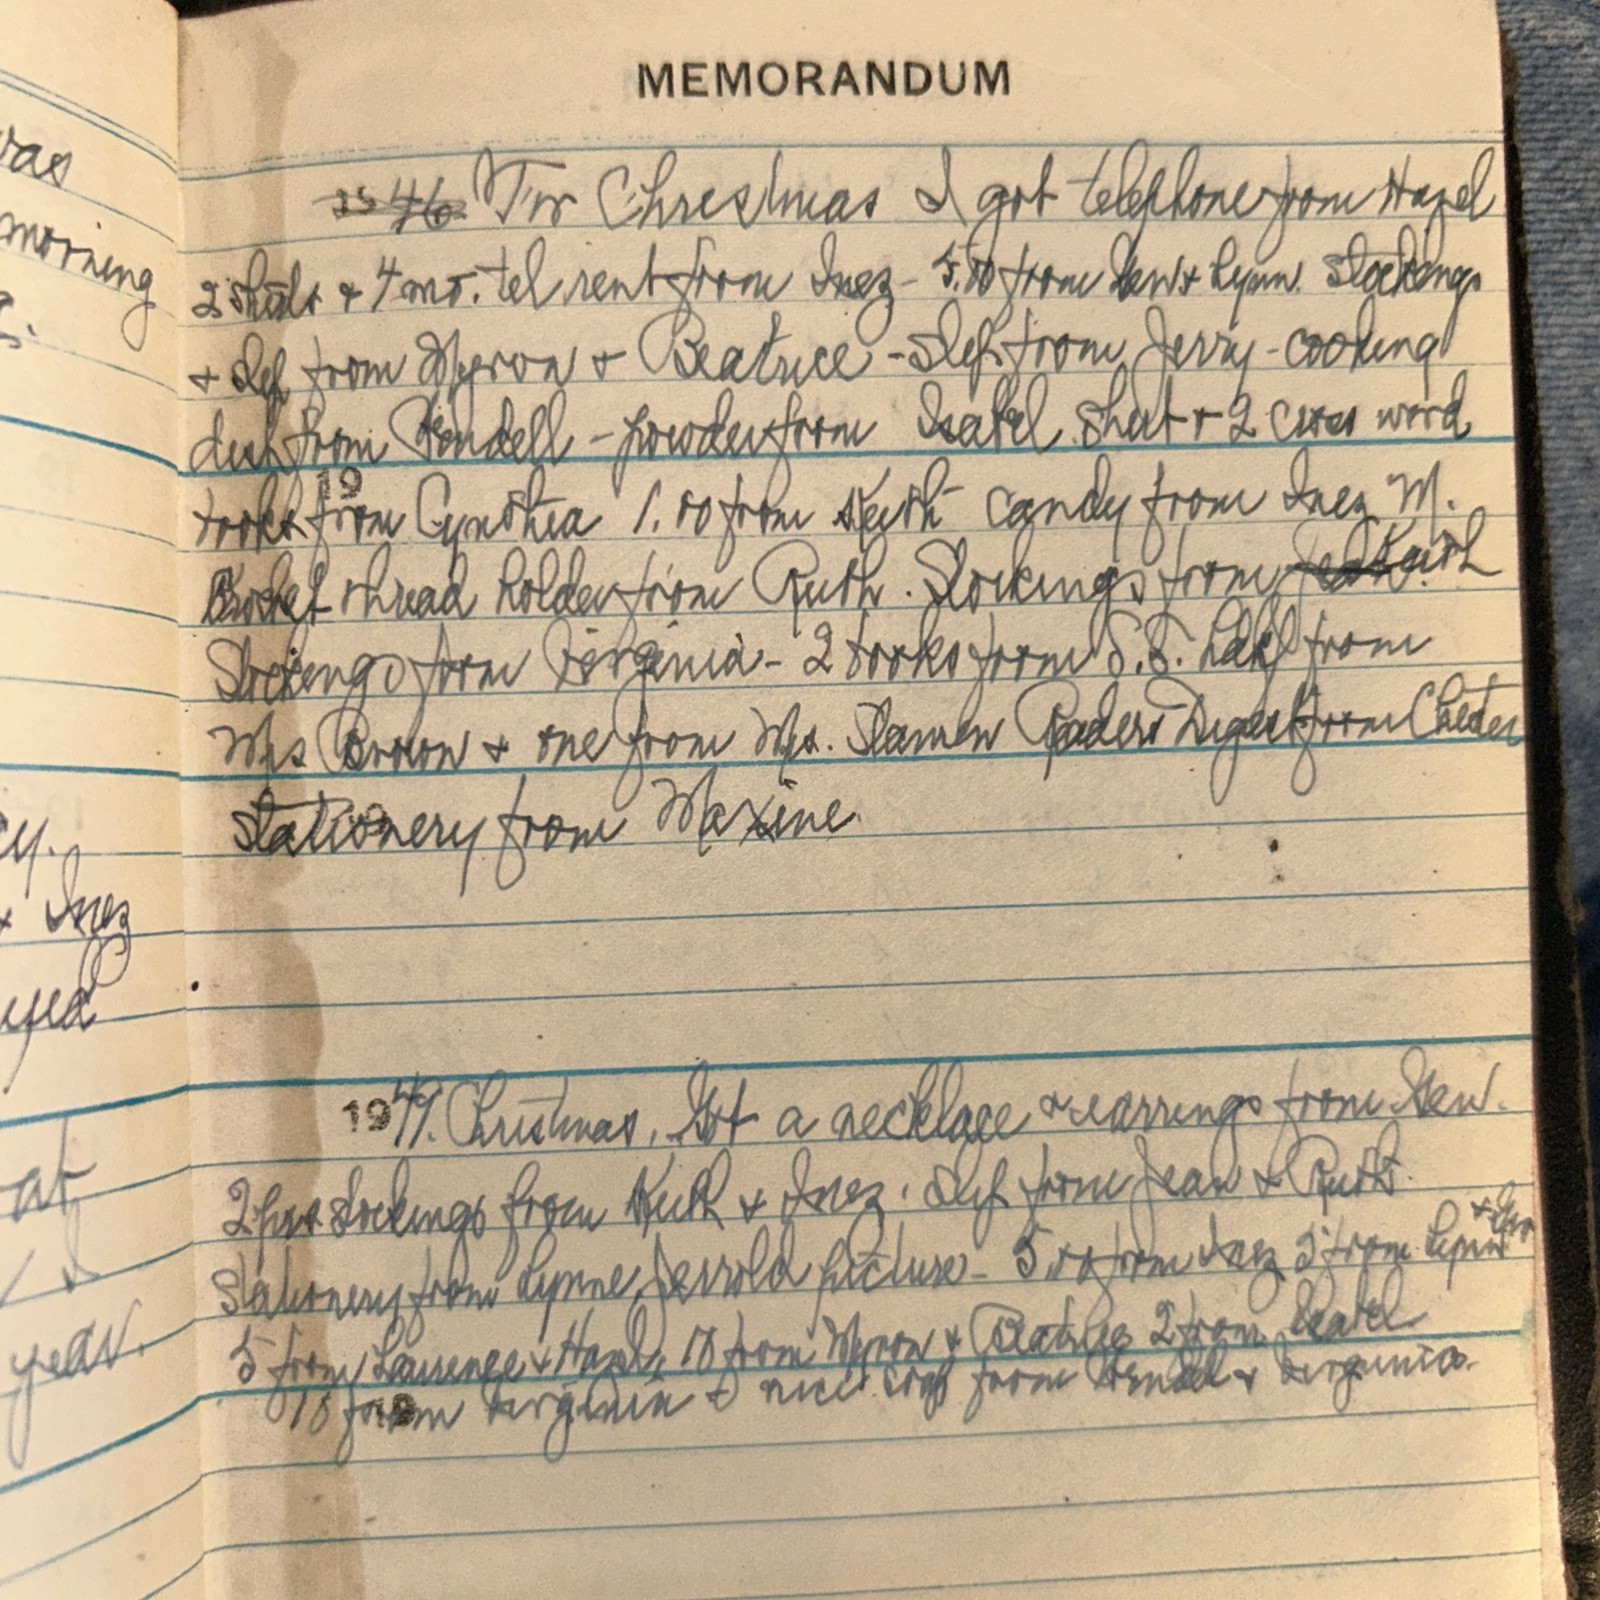 MEMORANDUM
ras
morning
46 For Christmas I got telephone from Hazel
2 & 4 mo. tel rent from Inez - 5.00 from & Lynn. Stockings
& Slip from Myron & Beatrice - Slip from Jerry - cooking
dish from Wendell - powder from Isabel. Sheet & 2 cross word
19
books from Cynthia 1.00 from Keith candy from Inez M.
thread holder from Ruth. Stockings from
Stockings from Virginia - 2 books from S.S. from
Mrs Brown & one from Mrs. Readers Digest from Chester
19
Stationery from Maxine.
y.
& Inez
1949. Christmas. Got a necklace & earrings from
2 prs Stockings from Keith & Inez. Slip from Jean & Ruth.
Stationery from Lynne, Jerrold picture - 5.00 from Inez 5 from Lynn
at
5 from Laurence & Hazel, 10 from Myron & Beatrice 2 from Isabel
year.
19
10 from Virginia & nice from Wendell & Virginia.